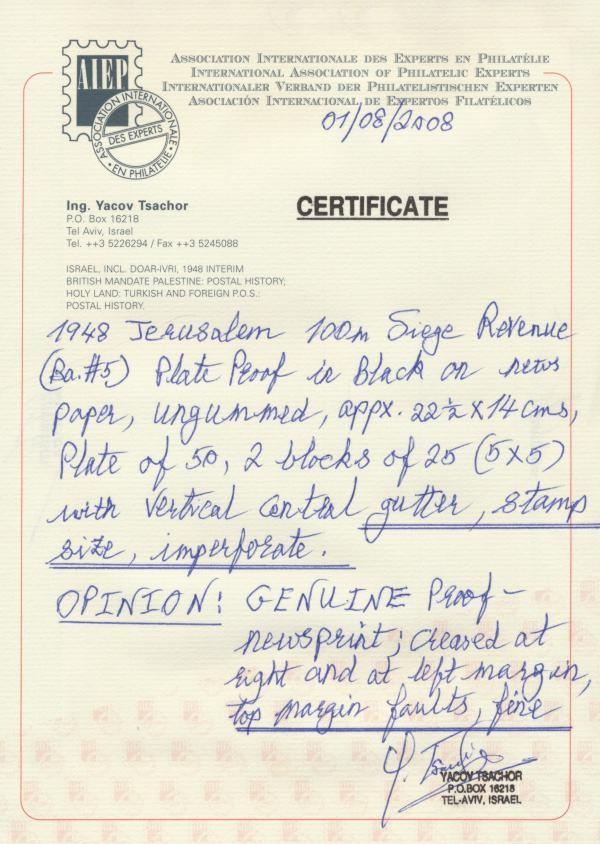 AIEP
ASSOCIATION INTERNATIONALE DES EXPERTS EN PHILATÉLIE
ASSOCIATION INTERNATIONALE DES EXPERTS EN PHILATÉLIE
INTERNATIONAL ASSOCIATION OF PHILATELIC EXPERTS
INTERNATIONALER VERBAND DER PHILATELISTISCHEN EXPERTEN
ASOCIACIÓN INTERNACIONAL DE EXPERTOS FILATÉLICOS
01/08/2008
Ing. Yacov Tsachor
P.O. Box 16218
Tel Aviv, Israel
Tel. ++3 5226294 / Fax ++3 5245088
CERTIFICATE
ISRAEL, INCL. DOAR-IVRI, 1948 INTERIM
BRITISH MANDATE PALESTINE: POSTAL HISTORY;
HOLY LAND: TURKISH AND FOREIGN P.O.S.:
POSTAL HISTORY.
1948 Jerusalem 100m Siege Revenue
(Ba.#5) Plate Proof in Black on news
paper, ungummed, appx. 22½ x 14 cms,
Plate of 50, 2 blocks of 25 (5x5)
with vertical central gutter, stamp
size, imperforate.
OPINION: GENUINE Proof -
newsprint; creased at
right and at left margin,
top margin faults, fine
Y. Tsachor
YACOV TSACHOR
P.O.BOX 16218
TEL-AVIV, ISRAEL